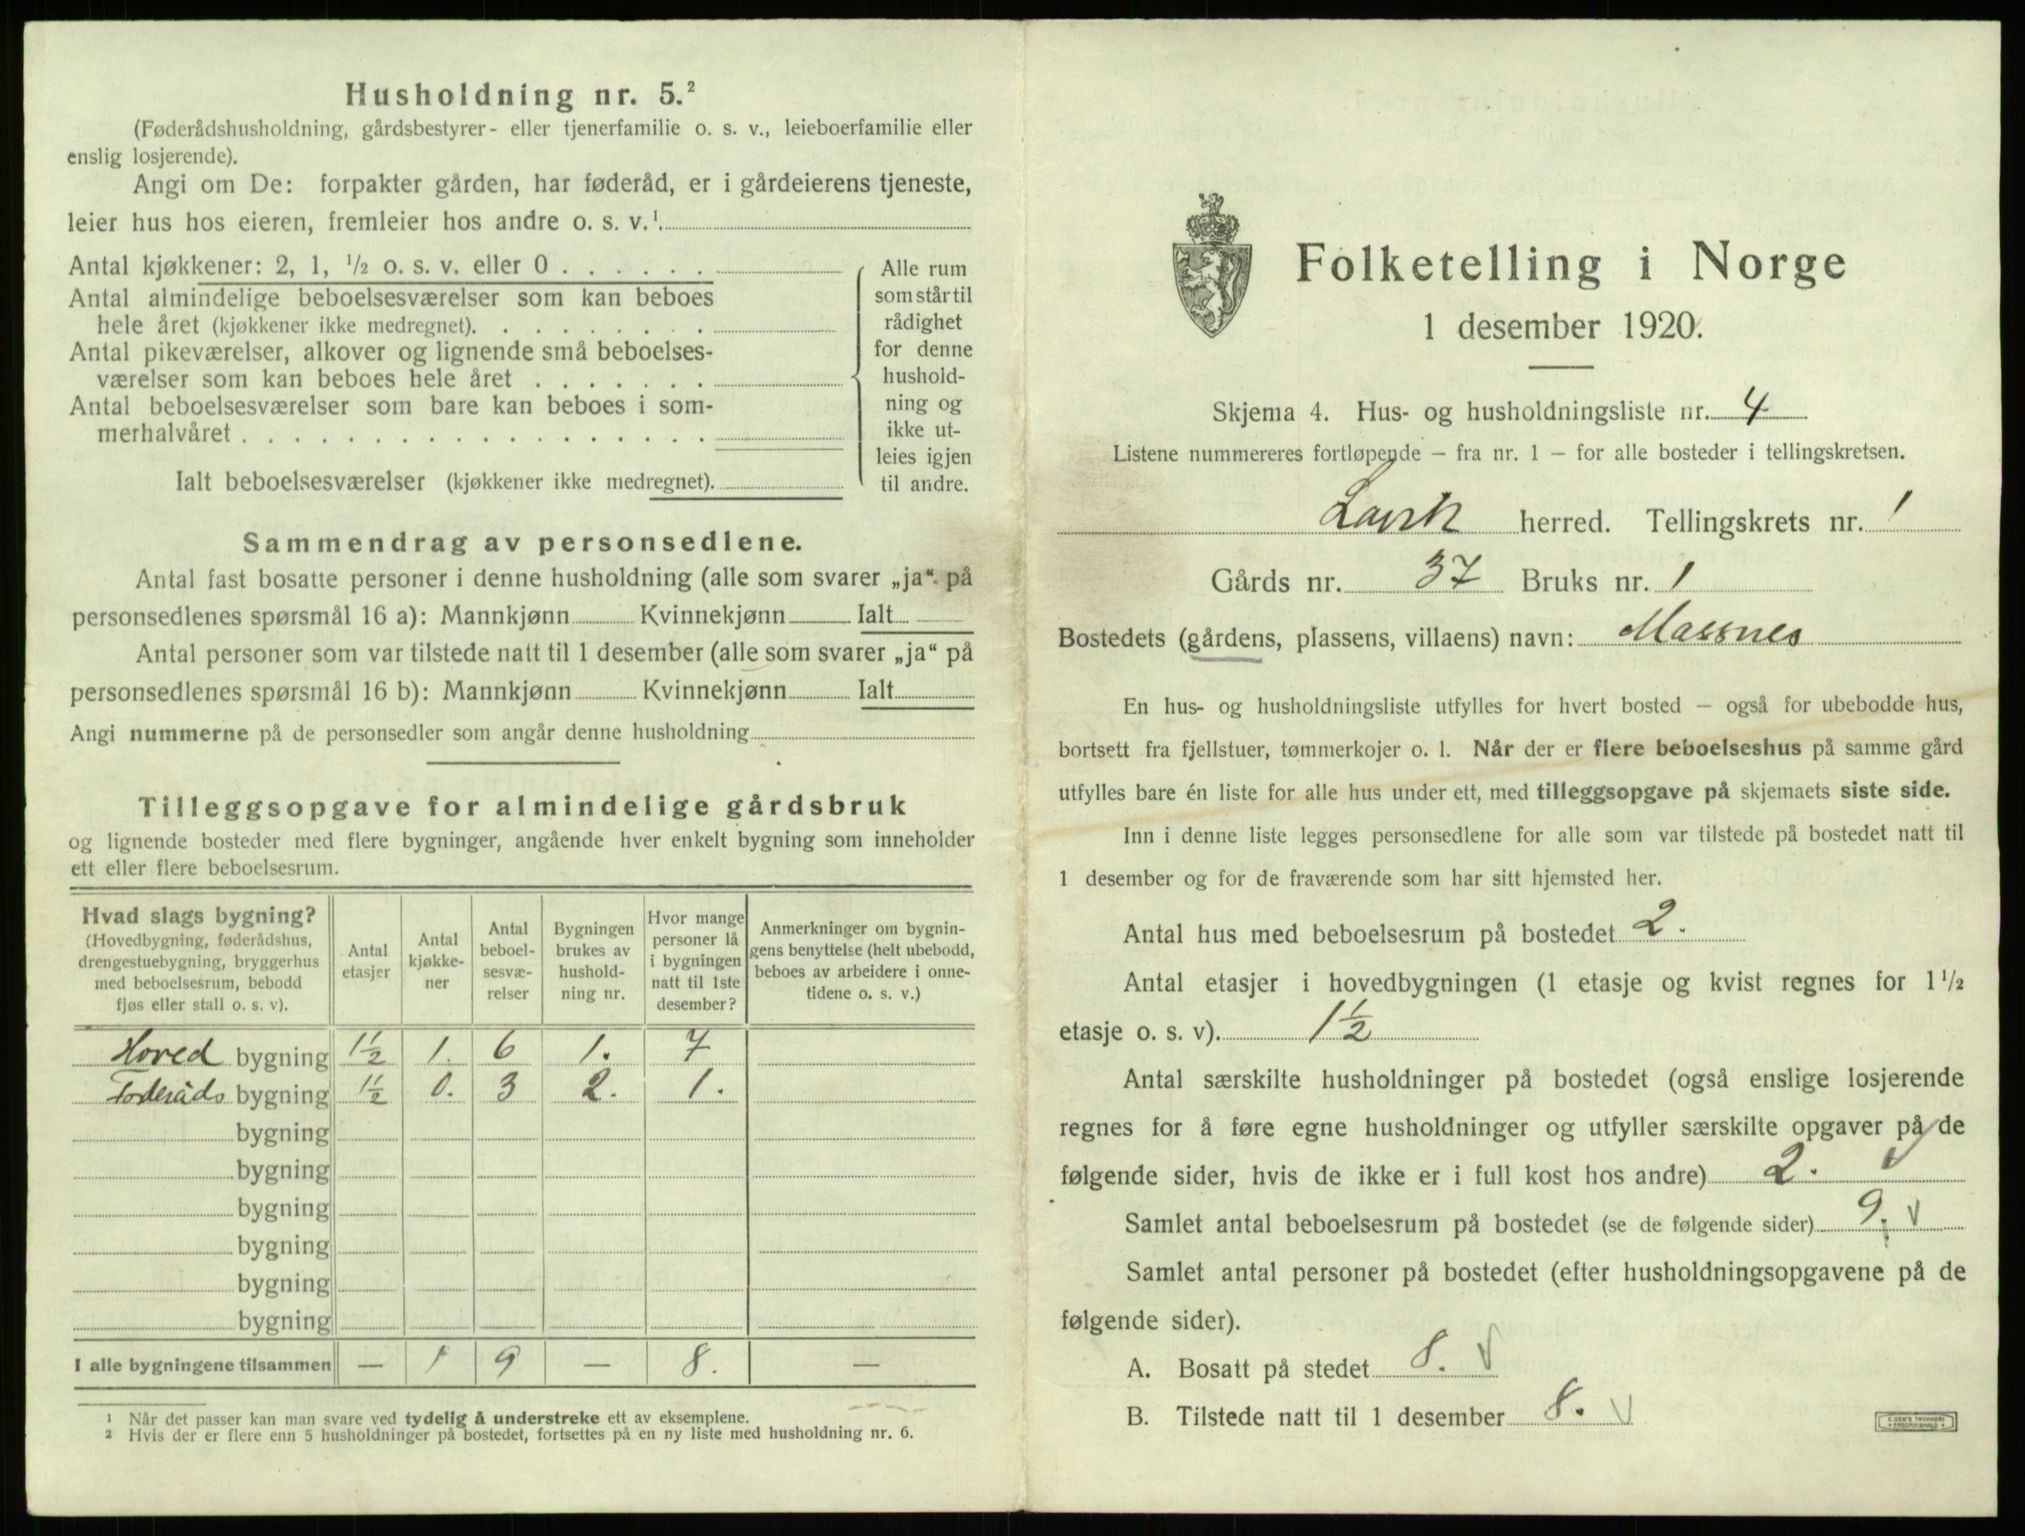 Husholdning nr. 5.²
(Føderådshusholdning, gårdsbestyrer- eller tjenerfamilie o. s. v., leieboerfamilie eller
enslig losjerende).
Angi om De: forpakter gården, har føderåd, er i gårdeierens tjeneste,
leier hus hos eieren, fremleier hos andre o. s. v.¹
Antal kjøkkener: 2, 1, ¹/₂ o. s. v. eller 0 . . . . . .
Antal almindelige beboelsesværelser som kan beboes
hele året (kjøkkener ikke medregnet). . . . . . . . .
Antal pikeværelser, alkover og lignende små beboelses-
værelser som kan beboes hele året . . . . . . .
Antal beboelsesværelser som bare kan beboes i som-
merhalvåret . . . . . . . . . . . . . . . . . .
Ialt beboelsesværelser (kjøkkener ikke medregnet).
Alle rum
som står til
rådighet
for denne
hushold-
ning og
ikke ut-
leies igjen
til andre.
Sammendrag av personsedlene.
Antal fast bosatte personer i denne husholdning (alle som svarer „ja“ på
personsedlenes spørsmål 16 a): Mannkjønn Kvinnekjønn Ialt
Antal personer som var tilstede natt til 1 desember (alle som svarer „ja“ på
personsedlenes spørsmål 16 b): Mannkjønn Kvinnekjønn Ialt
Angi nummerne på de personsedler som angår denne husholdning
Tilleggsopgave for almindelige gårdsbruk
og lignende bosteder med flere bygninger, angående hver enkelt bygning som inneholder
ett eller flere beboelsesrum.
Hvad slags bygning?
(Hovedbygning, føderådshus,
drengestuebygning, bryggerhus
med beboelsesrum, bebodd
fjøs eller stall o. s. v).
Antal
etasjer
Antal
kjøkke-
ner
Antal
beboel-
sesvæ-
relser
Bygningen
brukes av
hushold-
ning nr.
Hvor mange
personer lå
i bygningen
natt til 1ste
desember?
Anmerkninger om bygnin-
gens benyttelse (helt ubebodd,
beboes av arbeidere i onne-
tidene o. s. v.)
Hoved bygning 1½ 1. 6 1. 7
Foderåds bygning 1½ 0. 3 2. 1.
bygning
bygning
bygning
bygning
bygning
bygning
I alle bygningene tilsammen — 1 9 — 8. —
¹ Når det passer kan man svare ved tydelig å understreke ett av eksemplene.
² Hvis der er flere enn 5 husholdninger på bostedet, fortsettes på en ny liste med husholdning nr. 6.
Folketelling i Norge
1 desember 1920.
Skjema 4. Hus- og husholdningsliste nr. 4
Listene nummereres fortløpende – fra nr. 1 – for alle bosteder i tellingskretsen.
Lavik herred. Tellingskrets nr. 1
Gårds nr. 37 Bruks nr. 1
Bostedets (gårdens, plassens, villaens) navn: Massnes
En hus- og husholdningsliste utfylles for hvert bosted – også for ubebodde hus,
bortsett fra fjellstuer, tømmerkojer o. l. Når der er flere beboelseshus på samme gård
utfylles bare én liste for alle hus under ett, med tilleggsopgave på skjemaets siste side.
Inn i denne liste legges personsedlene for alle som var tilstede på bostedet natt til
1 desember og for de fraværende som har sitt hjemsted her.
Antal hus med beboelsesrum på bostedet 2.
Antal etasjer i hovedbygningen (1 etasje og kvist regnes for 1 ¹/₂
etasje o. s. v). 1½
Antal særskilte husholdninger på bostedet (også enslige losjerende
regnes for å føre egne husholdninger og utfyller særskilte opgaver på de
følgende sider, hvis de ikke er i full kost hos andre) 2. v
Samlet antal beboelsesrum på bostedet (se de følgende sider) 9. v
Samlet antal personer på bostedet (efter husholdningsopgavene på de
følgende sider).
A. Bosatt på stedet 8. v
B. Tilstede natt til 1 desember 8. v